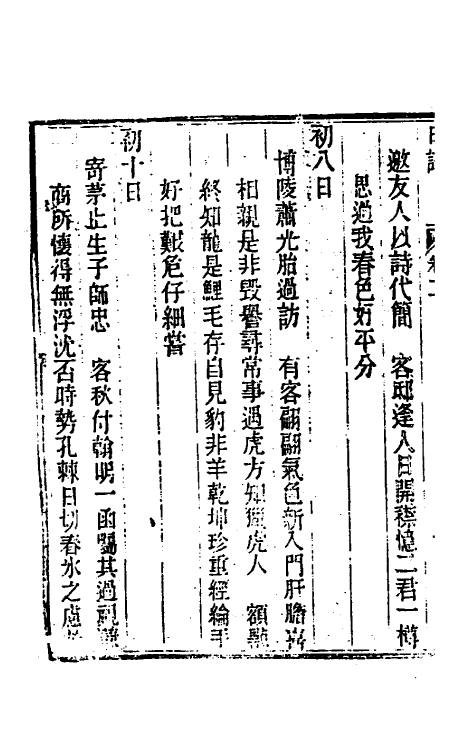 日譜 卷二
邀友人以詩代簡 客邸逢人日開襟憶二君一樽
思過我春色好平分
初八日
博陵蕭光胎過訪 有客翩翩氣色新入門肝膽喜
相親是非毀譽尋常事過虎方知獵虎人 額
終知龍是鯉毛存自見豹非羊乾坤珍重經綸手
好把艱危仔細嘗
初十日
寄茅止生子師忠 客秋付翰明一函囑其過視
商所懷得無浮沈否時勢孔棘日切春水之慮